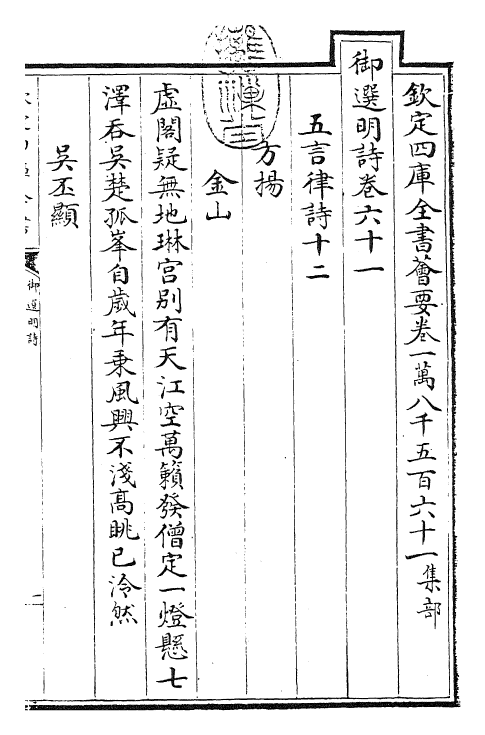 欽定四庫全書薈要卷一萬八千五百六十一集部
御選明詩卷六十一
五言律詩十二
方揚
金山
虛閣疑無地琳宫别有天江空萬籟發僧定一燈懸七
澤吞吳楚孤峯自歲年乘風興不淺高眺已泠然
吳丕顯
御選明詩